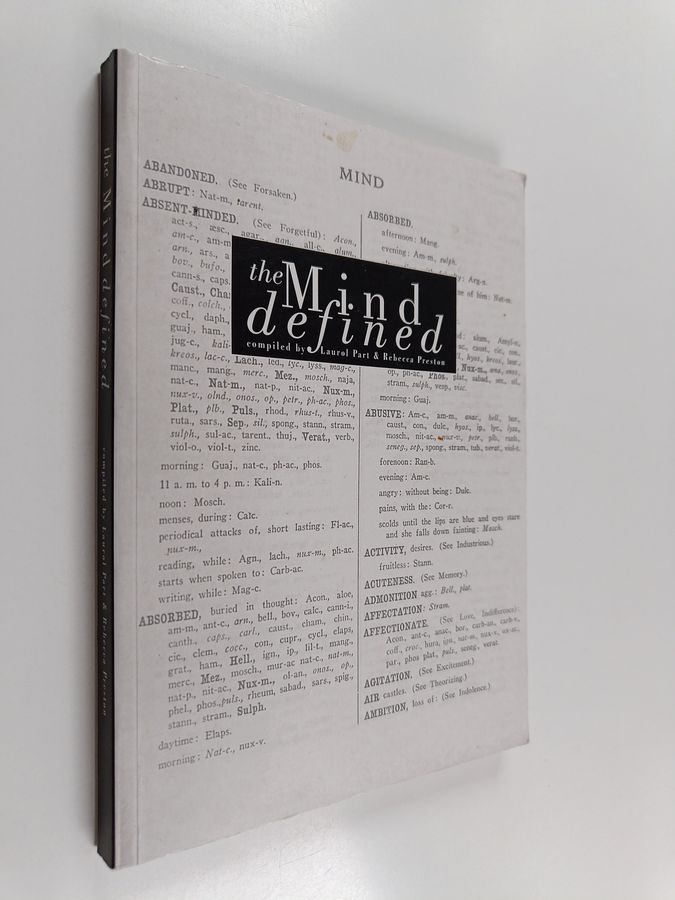 the Mind defined
compiled by Laurol Part & Rebecca Preston
MIND
ABANDONED. (See Forsaken.)
ABRUPT: Nat-m., tarent.
ABSENT-MINDED. (See Forgetful): Acon.,
act-s., æsc., agar., all-c., alum.,
am-c., am-m
arn., ars., a
bov., bufo.,
cann-s., caps.
Caust., Cha
coff., colch.,
cycl., daph.,
guaj., ham.,
jug-c., kali-
kreos., lac-c., Lach., led., lyc., lyss., mag-c.,
manc., mang., merc., Mez., mosch., naja,
nat-c., Nat-m., nat-p., nit-ac., Nux-m.,
nux-v., olnd., onos., op., petr., ph-ac., phos.,
Plat., plb., Puls., rhod., rhus-t., rhus-v.,
ruta., sars., Sep., sil., spong., stann., stram.,
sulph., sul-ac., tarent., thuj., Verat., verb.,
viol-o., viol-t., zinc.
morning: Guaj., nat-c., ph-ac., phos.
11 a. m. to 4 p. m.: Kali-n.
noon: Mosch.
menses, during: Calc.
periodical attacks of, short lasting: Fl-ac.,
nux-m.,
reading, while: Agn., lach., nux-m., ph-ac.
starts when spoken to: Carb-ac.
writing, while: Mag-c.
ABSORBED, buried in thought: Acon., aloe,
am-m., ant-c., arn., bell., bov., calc., cann-i.,
canth., caps., carl., caust., cham., chin.,
cic., clem., cocc., con., cupr., cycl., elaps,
grat., ham., Hell., ign., ip., lil-t., mang.,
merc., Mez., mosch., mur-ac nat-c., nat-m.,
nat-p., nit-ac., Nux-m., ol-an., onos., op.,
phel., phos., puls., rheum, sabad., sars., spig.,
stann., stram., Sulph.
daytime: Elaps.
morning: Nat-c., nux-v.
ABSORBED.
afternoon: Mang.
evening: Am-m., sulph.
Arg-n.
of him: Nat-m.
the Mind
defined
compiled by Laurol Part & Rebecca Preston
op., ph-ac., Phos., plat., sabad., sep., sil.,
stram., sulph., vesp., visc.
morning: Guaj.
ABUSIVE: Am-c., am-m., anac., bell., bor.,
caust., con., dulc., hyos., ip., lyc., lyss.,
mosch., nit-ac., nux-v., petr., plb., ranb.,
seneg., sep., spong., stram., tub., verat., viol-t.
forenoon: Ran-b.
evening: Am-c.
angry: without being: Dulc.
pains, with the: Cor-r.
scolds until the lips are blue and eyes stare
and she falls down fainting: Mosch.
ACTIVITY, desires. (See Industrious.)
fruitless: Stann.
ACUTENESS. (See Memory.)
ADMONITION agg.: Bell., plat.
AFFECTATION: Stram.
AFFECTIONATE. (See Love, Indifference):
Acon., ant-c., anac., bor., carb-an., carb-v.,
coff., croc., hura, ign., nat-m., nux-v., ox-ac.,
par., phos plat., puls., seneg., verat.
AGITATION. (See Excitement.)
AIR castles. (See Theorizing.)
AMBITION, loss of: (See Indolence.)